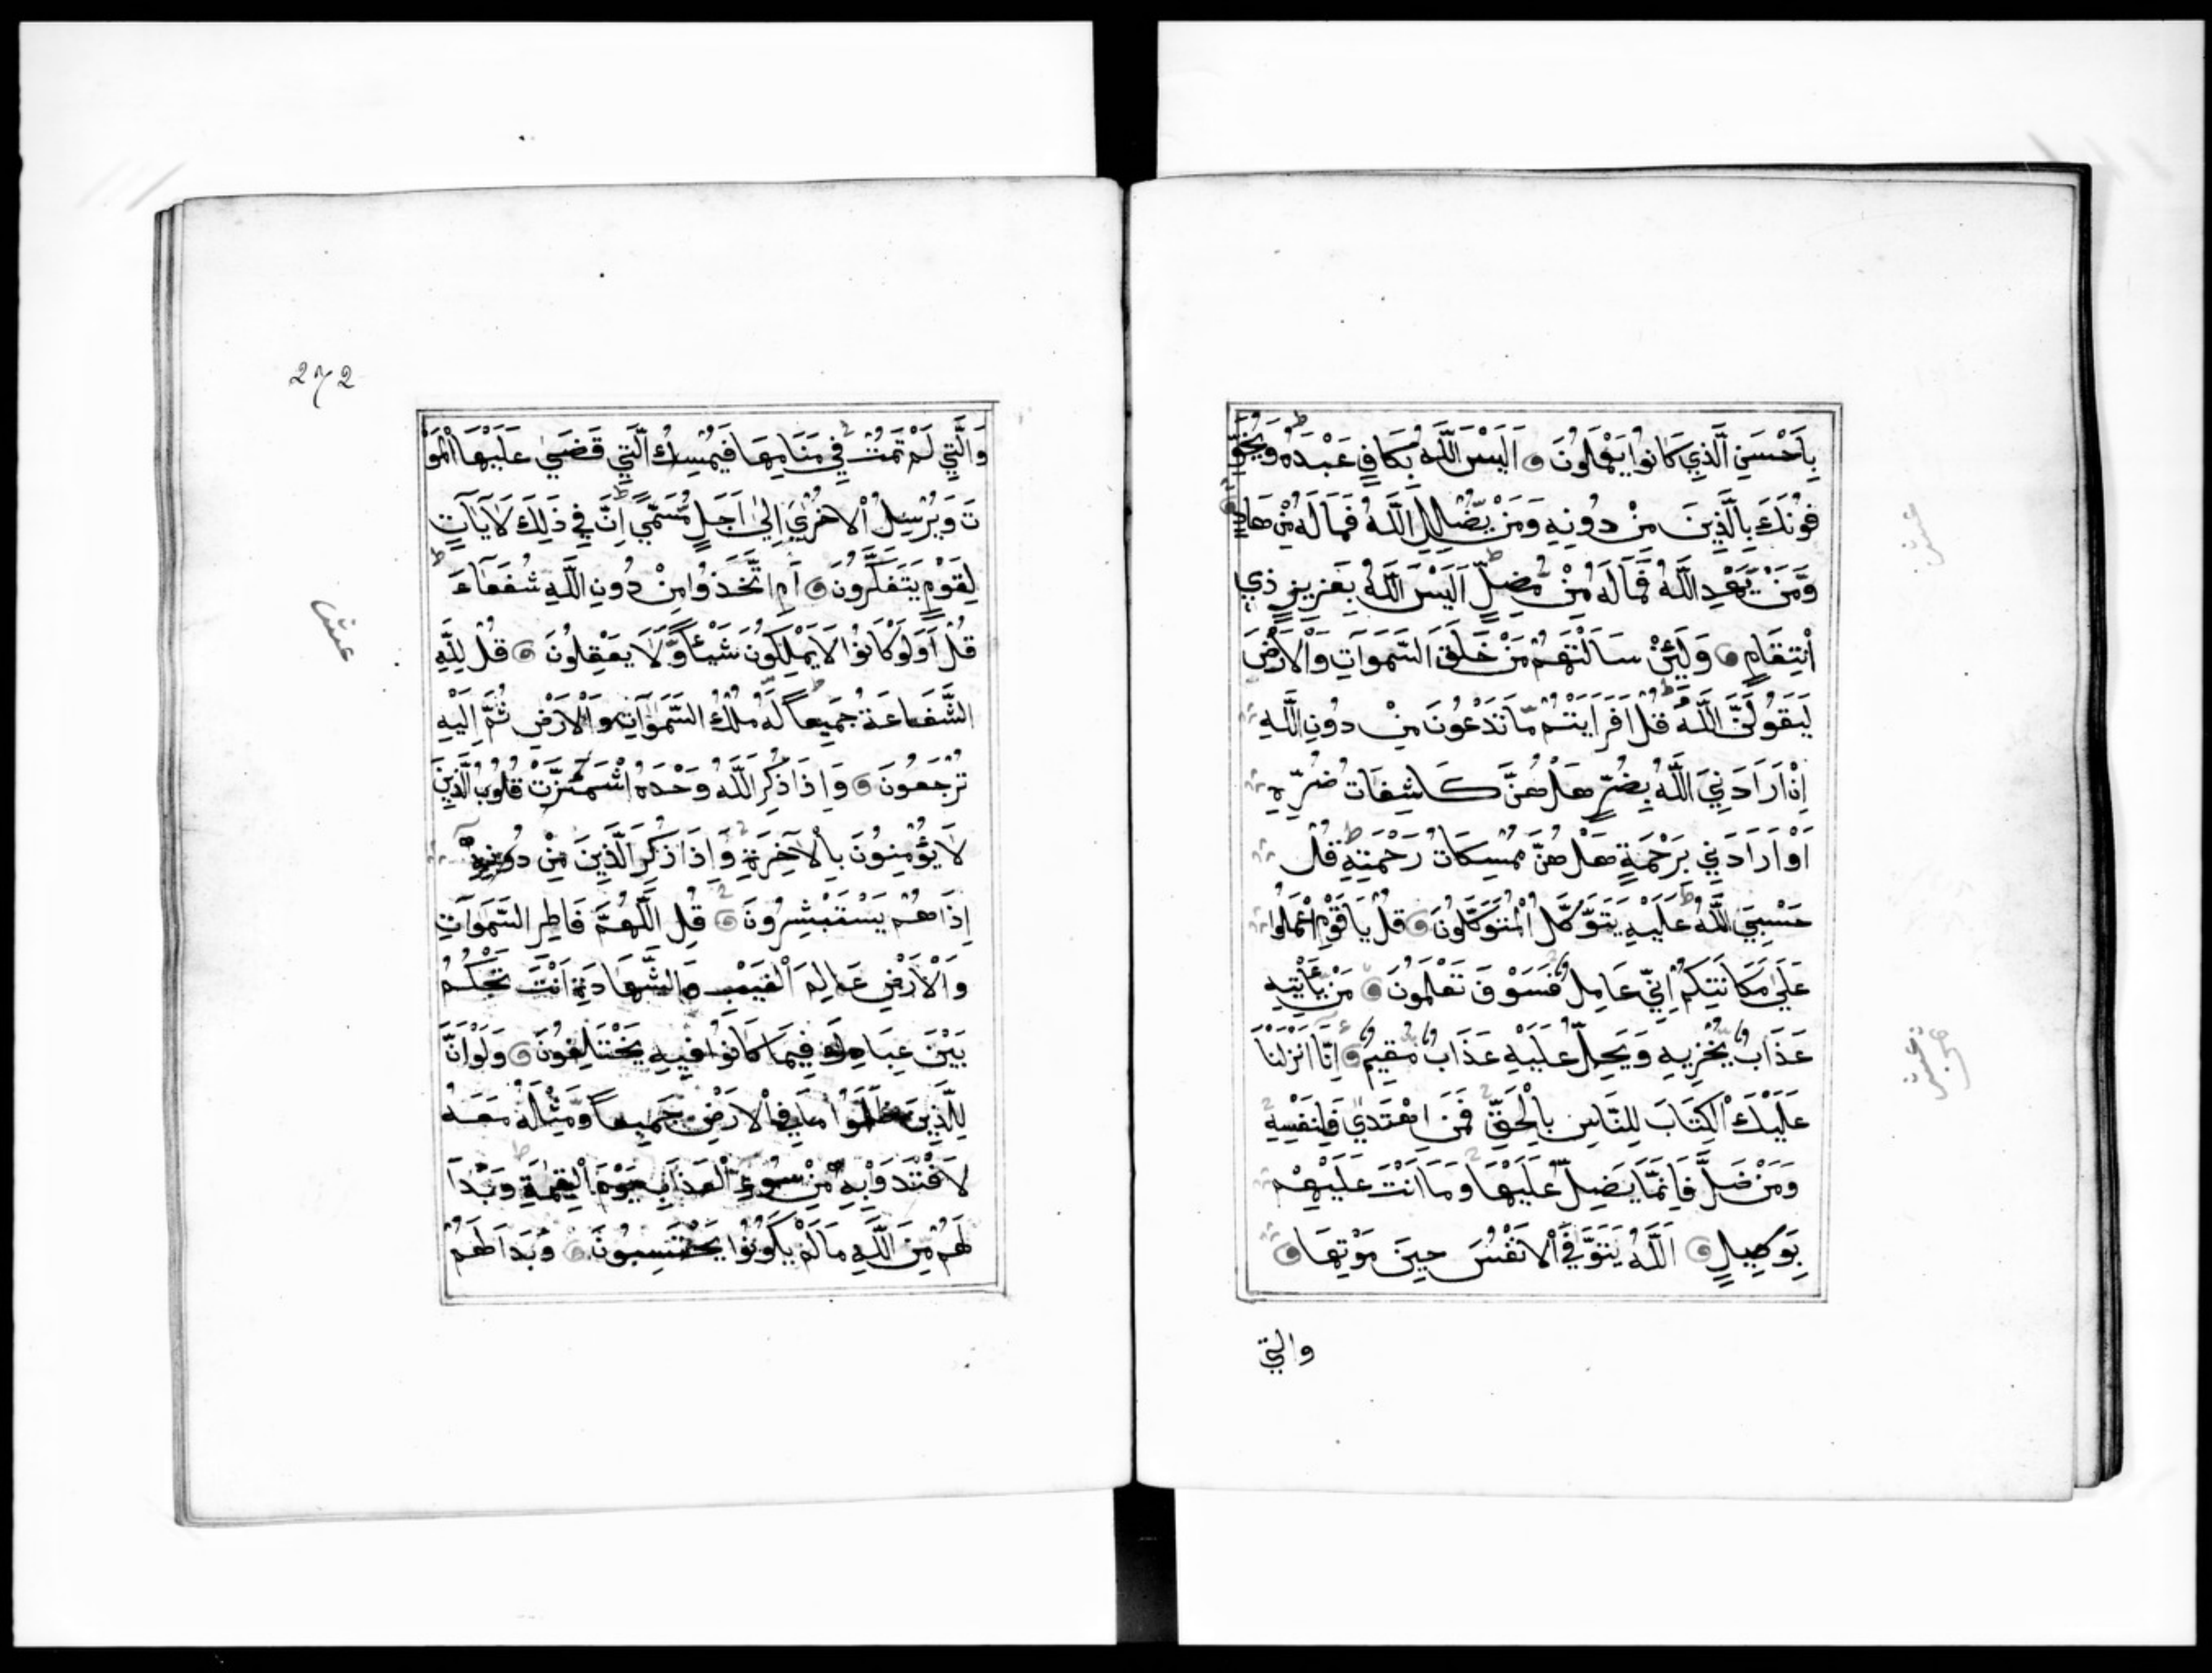 بِاَحْسَنِ الَّذِي كَانُوا يَعْمَلُونَ اَلَيْسَ اللَّهُ بِكَافٍ عَبْدَهُ وَيُخَوِّ
فُونَكَ بِالَّذِينَ مِنْ دُونِهِ وَمَنْ يُضْلِلِ اللَّهُ فَمَا لَهُ مِنْ هَادٍ
وَمَنْ يَهْدِ اللَّهُ فَمَا لَهُ مِنْ مُضِلٍّ اَلَيْسَ اللَّهُ بِعَزِيزٍ ذِي
انْتِقَامٍ وَلَئِنْ سَاَلْتَهُمْ مَنْ خَلَقَ السَّمَوَاتِ وَالْاَرْضَ
لَيَقُولُنَّ اللَّهُ قُلْ اَفَرَاَيْتُمْ مَا تَدْعُونَ مِنْ دُونِ اللَّهِ
اِنْ اَرَادَنِيَ اللَّهُ بِضُرٍّ هَلْ هُنَّ كَاشِفَاتُ ضُرِّهِ
اَوْ اَرَادَنِي بِرَحْمَةٍ هَلْ هُنَّ مُمْسِكَاتُ رَحْمَتِهِ قُلْ
حَسْبِيَ اللَّهُ عَلَيْهِ يَتَوَكَّلُ الْمُتَوَكِّلُونَ قُلْ يَا قَوْمِ اعْمَلُوا
عَلَى مَكَانَتِكُمْ اِنِّي عَامِلٌ فَسَوْفَ تَعْلَمُونَ مَنْ يَأْتِيهِ
عَذَابٌ يُخْزِيهِ وَيَحِلُّ عَلَيْهِ عَذَابٌ مُقِيمٌ اِنَّا اَنْزَلْنَا
عَلَيْكَ الْكِتَابَ لِلنَّاسِ بِالْحَقِّ فَمَنِ اهْتَدَي فَلِنَفْسِهِ
وَمَنْ ضَلَّ فَاِنَّمَا يَضِلُّ عَلَيْهَا وَمَا اَنْتَ عَلَيْهِمْ
بِوَكِيلٍ اَللَّهُ يَتَوَفَّي الْاَنْفُسَ حِينَ مَوْتِهَا
والتي
272
وَالَّتِي لَمْ تَمُتْ فِي مَنَامِهَا فَيُمْسِكُ الَّتِي قَضَي عَلَيْهَا الْمَوْ
تَ وَيُرْسِلُ الْاُخْرَي اِلَى اَجَلٍ مُسَمًّي اِنَّ فِي ذَلِكَ لَآيَاتٍ
لِقَوْمٍ يَتَفَكَّرُونَ اَمِ اتَّخَذُوا مِنْ دُونِ اللَّهِ شُفَعَاءَ
قُلْ اَوَلَوْ كَانُوا لَا يَمْلِكُونَ شَيْئًا وَلَا يَعْقِلُونَ قُلْ لِلَّهِ
الشَّفَاعَةُ جَمِيعًا لَهُ مُلْكُ السَّمَوَاتِ وَالْاَرْضِ ثُمَّ اِلَيْهِ
تُرْجَعُونَ وَاِذَا ذُكِرَ اللَّهُ وَحْدَهُ اشْمَأَزَّتْ قُلُوبُ الَّذِينَ
لَا يُؤْمِنُونَ بِالْآخِرَةِ وَاِذَا ذُكِرَ الَّذِينَ مِنْ دُونِهِ
اِذَا هُمْ يَسْتَبْشِرُونَ قُلِ اللَّهُمَّ فَاطِرَ السَّمَوَاتِ
وَالْاَرْضِ عَالِمَ الْغَيْبِ وَالشَّهَادَةِ اَنْتَ تَحْكُمُ
بَيْنَ عِبَادِكَ فِيمَا كَانُوا فِيهِ يَخْتَلِفُونَ وَلَوْ اَنَّ
لِلَّذِينَ ظَلَمُوا مَا فِي الْاَرْضِ جَمِيعًا وَمِثْلَهُ مَعَهُ
لَافْتَدَوْا بِهِ مِنْ سُوءِ الْعَذَابِ يَوْمَ الْقِيمَةِ وَبَدَا
لَهُمْ مِنَ اللَّهِ مَا لَمْ يَكُونُوا يَحْتَسِبُونَ وَبَدَا لَهُمْ
عشر